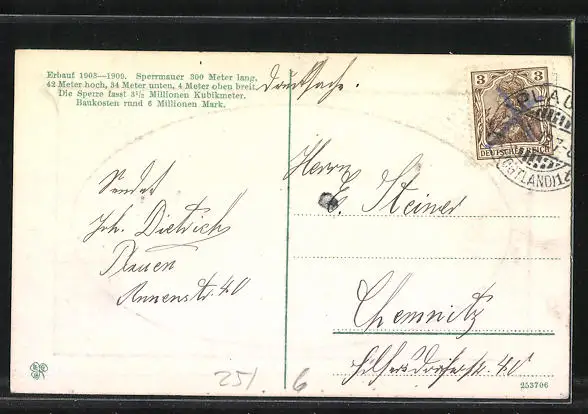 Erbaut 1903—1909. Sperrmauer 300 Meter lang,
42 Meter hoch, 34 Meter unten, 4 Meter oben breit.
Die Sperre fasst 3½ Millionen Kubikmeter.
Baukosten rund 6 Millionen Mark.
Drucksache.
3 3
DEUTSCHES REICH
PLAU
(VOGTLAND) 1
Herrn
E. Steiner
Chemnitz
Sendet
Joh. Dietrich
Plauen
Annenstr. 40
251
6
253706